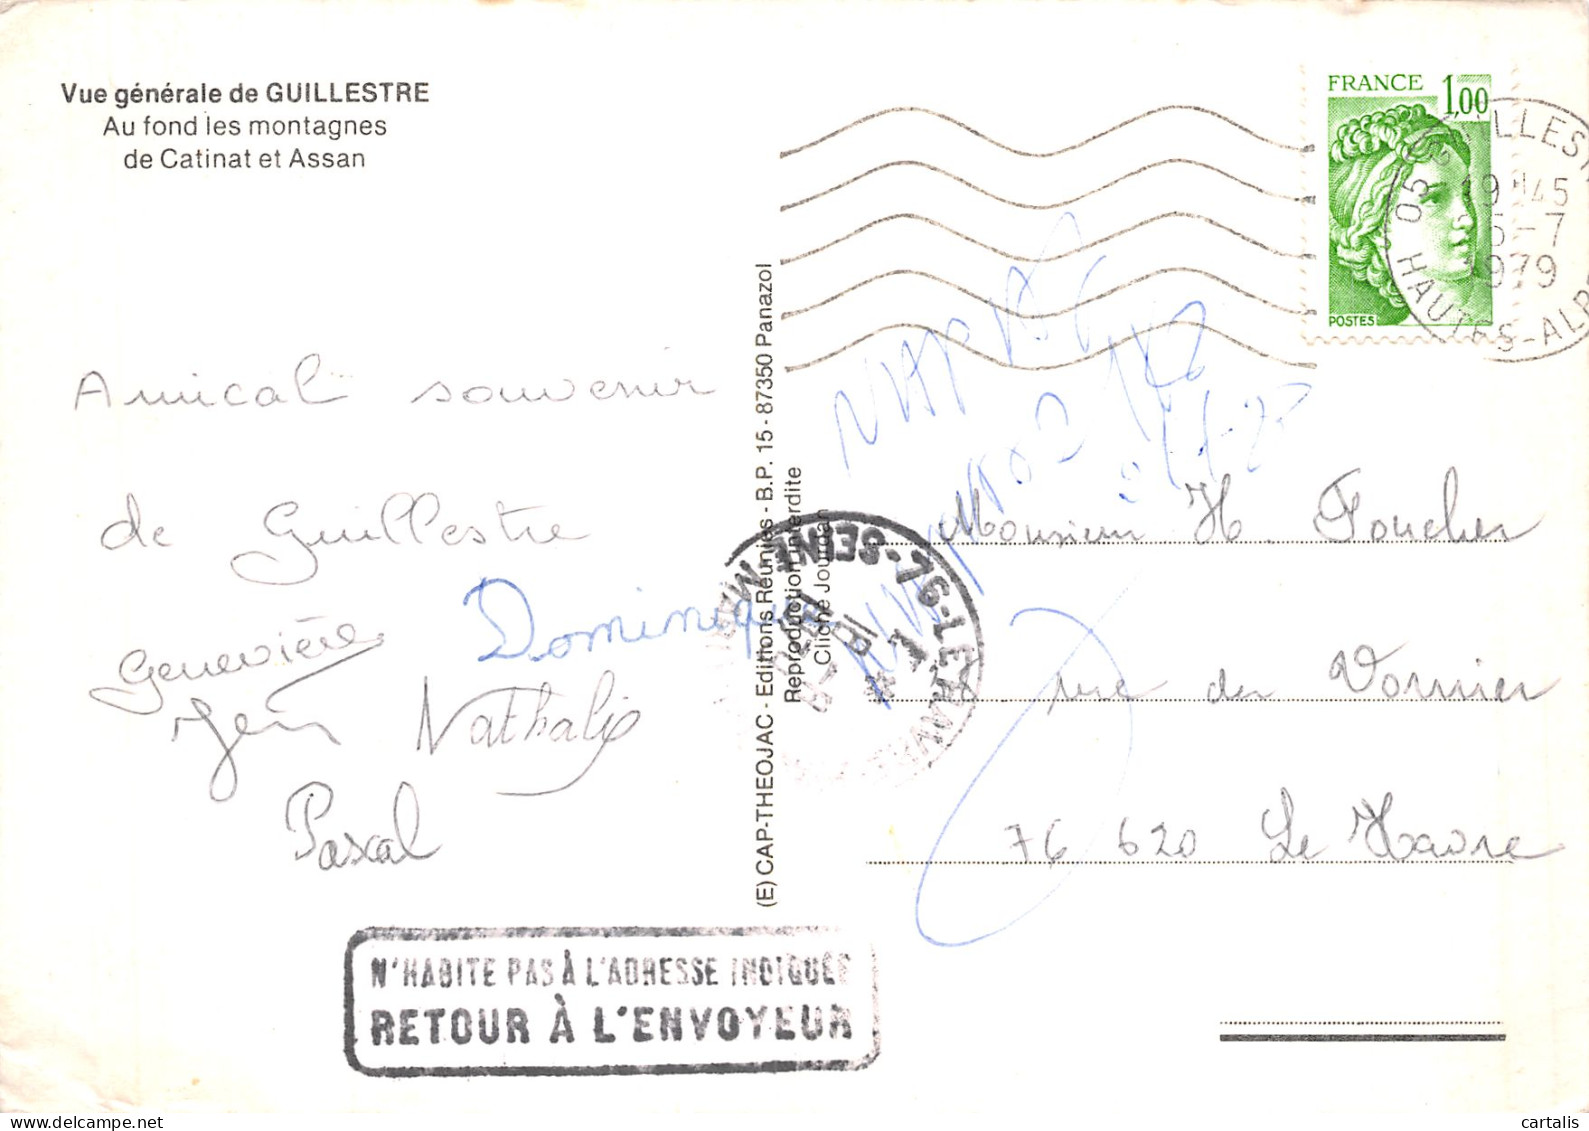 Vue générale de GUILLESTRE
Au fond les montagnes
de Catinat et Assan
FRANCE 1,00
POSTES
19 45
5-7
1979
HAUTES-ALP
Amical souvenir
de Guillestre
Geneviève Dominique
Nathalie
Pascal
(E) CAP-THEOJAC - Editions Réunies - B.P. 15 - 87350 Panazol
Reproduction interdite
Cliché Jourdan
76-LE HAVRE
SEINE
Monsieur H. Foucher
rue du
76 620 Le Havre
N'HABITE PAS À L'ADRESSE INDIQUÉE
RETOUR À L'ENVOYEUR
cartalis